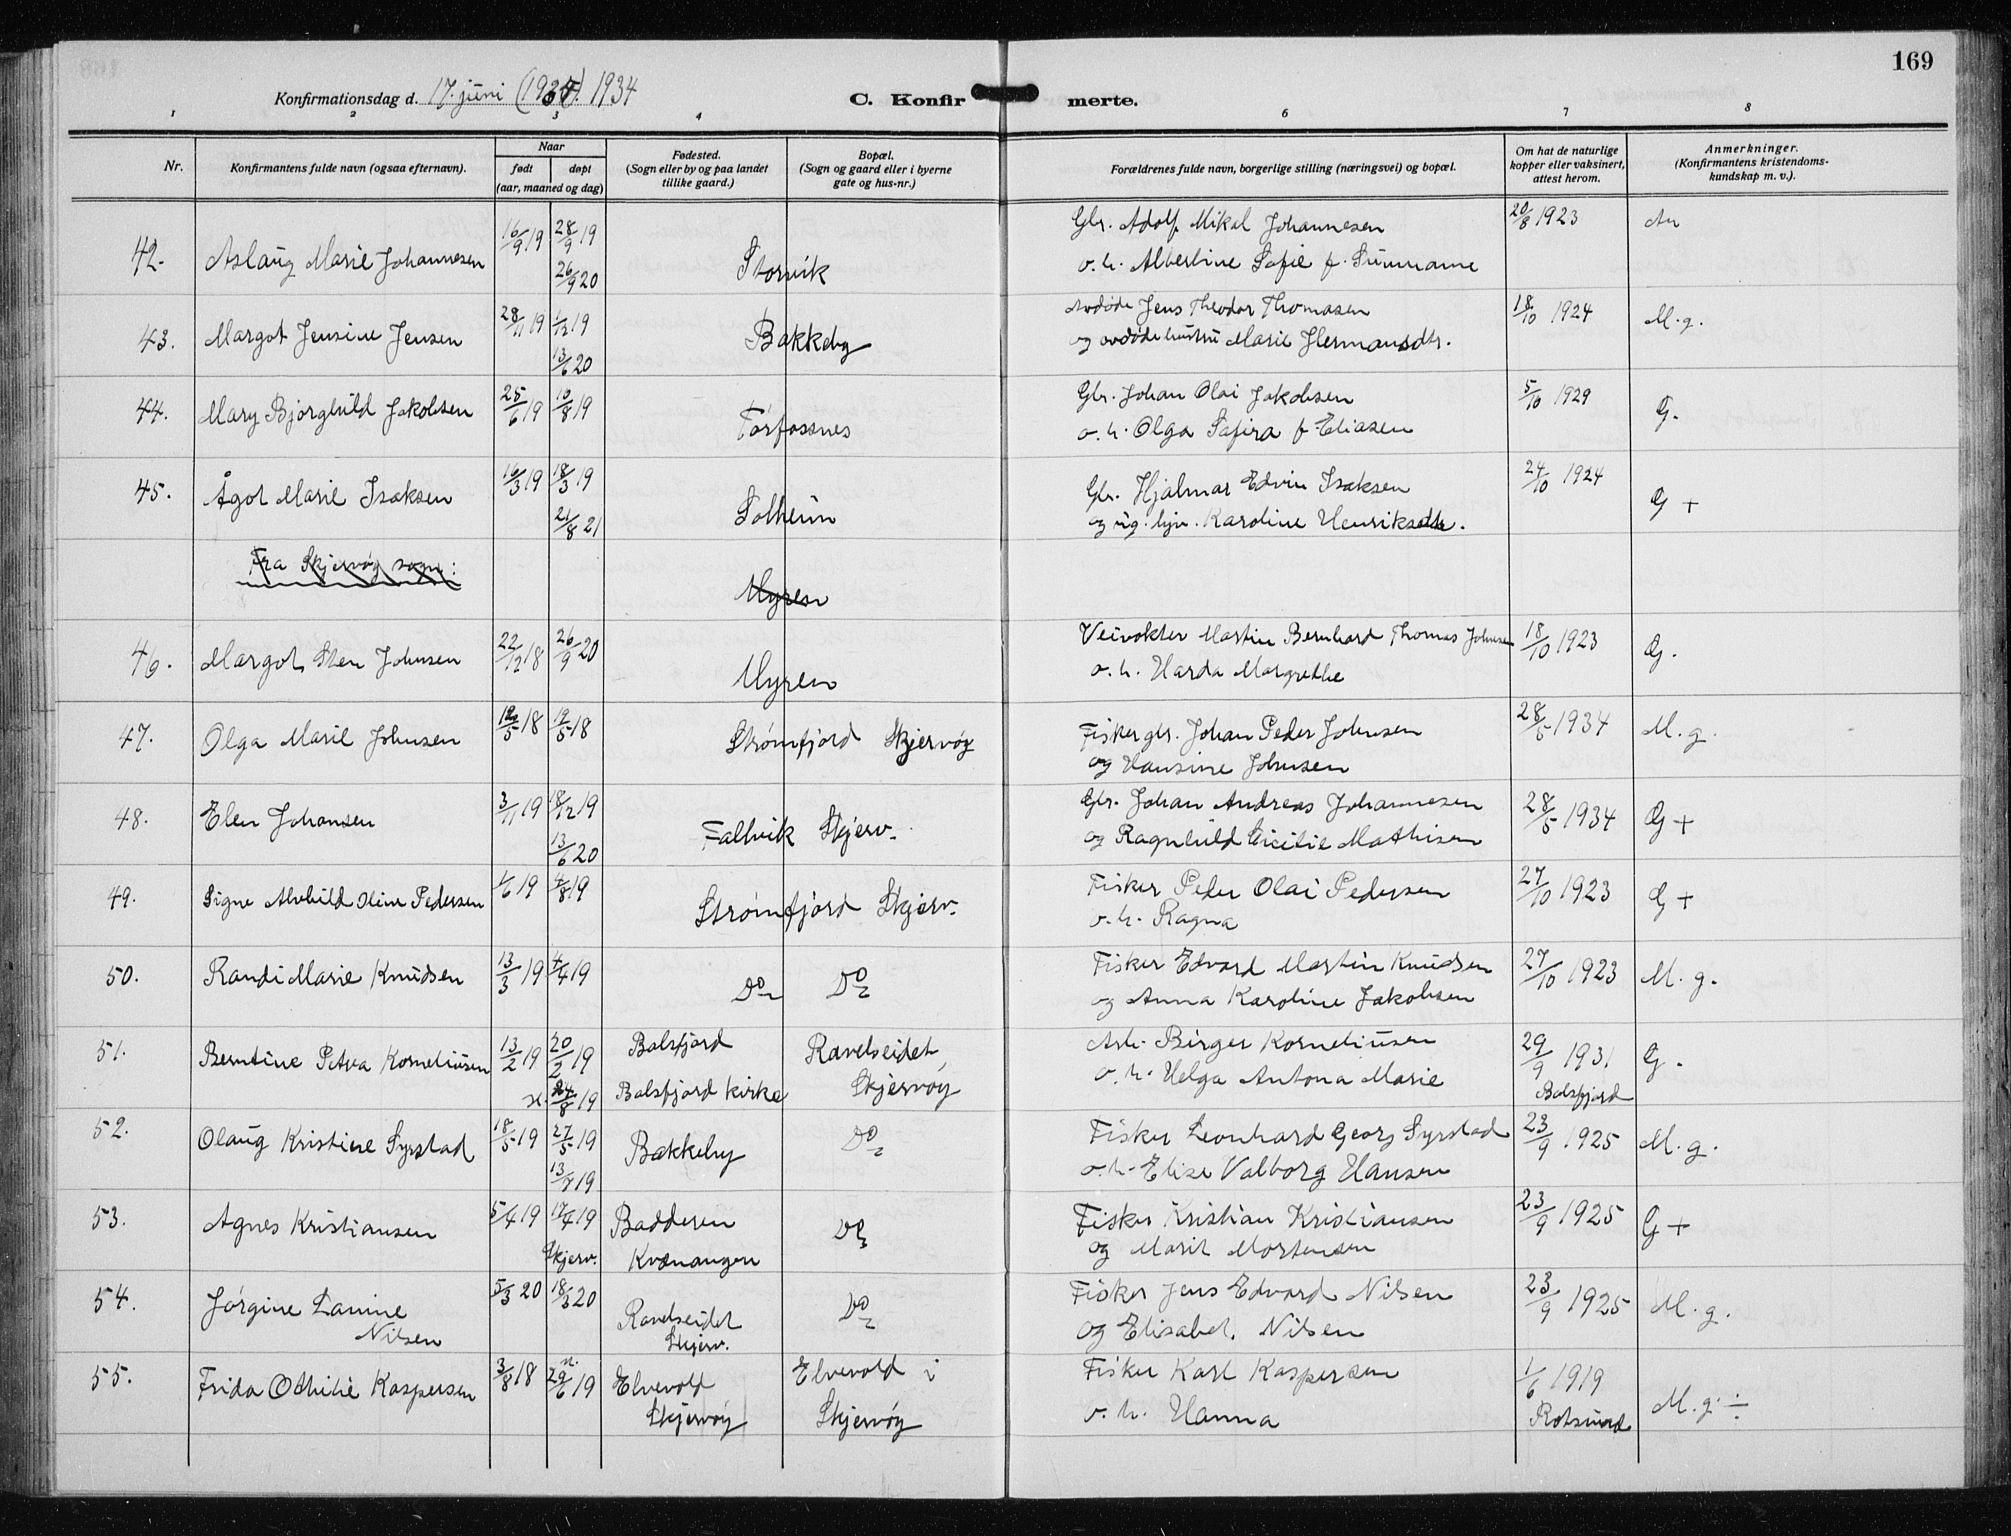 169
Konfirmationsdag d. 17. juni 1934
C. Konfirmerte.
1 2 3 4 6 7 8
Nr.
Konfirmantens fulde navn (ogsaa efternavn).
Naar
født døpt
(aar, maaned og dag)
Fødested.
(Sogn eller by og paa landet
tillike gaard.)
Bopæl.
(Sogn og gaard eller i byerne
gate og hus-nr.)
Forældrenes fulde navn, borgerlige stilling (næringsvei) og bopæl.
Om hat de naturlige
kopper eller vaksinert,
attest herom.
Anmerkninger.
(Konfirmantens kristendoms-
kundskap m. v.).
42. Aslaug Marie Johannesen 16/9 19 28/9 19 Storvik Gbr. Adolf Mikal Johannesen 20/8 1923
26/9 20 o. h. Albertine Sofie f. Simmane
43. Margot Jensine Jensen 28/11 19 1/12 19 Bakkeby Avdøde Jens Theodor Thomasen 18/10 1924 M. g.
13/6 20 og avdøde hustru Marie Hermansdtr.
44. Mary Bjørghild Jakobsen 25/6 19 10/8 19 Førfossnes Gbr. Johan Olai Jakobsen 5/10 1929 G.
o. h. Olga Safira f. Eliasen
45. Ågot Marie Isaksen 16/3 19 18/3 19 Solheim Gbr. Hjalmar Edvin Isaksen 24/10 1924 G +
21/8 21 og ug. hjv. Karoline Henriksdtr.
Fra Skjervøy sogn:
Myren
46. Margot Sten Johnsen 22/12 18 26/9 20 Myren Veivokter Martin Bernhard Thomas Johnsen 18/10 1923 G.
o. h. Harda Margrethe
47. Olga Marie Johnsen 12/5 18 19/5 18 Strømfjord Skjervøy Fisker gbr. Johan Peder Johnsen 28/5 1934 M. g.
og Hansine Johnsen
48. Elen Johansen 3/11 19 18/12 19 Fallvik Skjerv. Gbr. Johan Andreas Johannesen 28/5 1934 G +
13/6 20 og Ragnhild Cicilie Mathisen
49. Signe Alvhild Oline Pedersen 1/6 19 4/8 19 Strømfjord Skjerv. Fisker Peder Olai Pedersen 27/10 1923 G +
o. h. Ragna
50. Randi Marie Knudsen 13/3 19 4/4 19 Do Do Fisker Edvard Martin Knudsen 27/10 1923 M. g.
og Anna Karoline Jakobsen
51. Berntine Petra Korneliusen 13/2 19 20/2 19 Balsfjord Ravelseidet Arb. Birger Korneliusen 29/9 1931 G.
24/8 19 Balsfjord kirke Skjervøy o. h. Helga Antona Marie Balsfjord
52. Olaug Kristine Syrstad 18/5 19 27/5 19 Bakkeby Do Fisker Leonhard Georg Syrstad 23/9 1925 M. g.
13/7 19 o. h. Elise Valborg Hansen
53. Agnes Kristiansen 5/4 19 17/4 19 Badderen Do Fisker Kristian Kristiansen 23/9 1925 G +
Skjerv. Kvænangen og Marit Mortensen
54. Jørgine Lanine 5/3 20 18/3 20 Ravelseidet Do Fisker Jens Edvard Nilsen 23/9 1925 M. g.
Nilsen Skjerv. og Elisabet. Nilsen
55. Frida Othilie Kaspersen 3/8 18 29/6 19 Elvevold Elvevold i Fisker Karl Kaspersen 1/6 1919 M. g. ÷
Skjervøy Skjervøy o. h. Hanna Rotsund